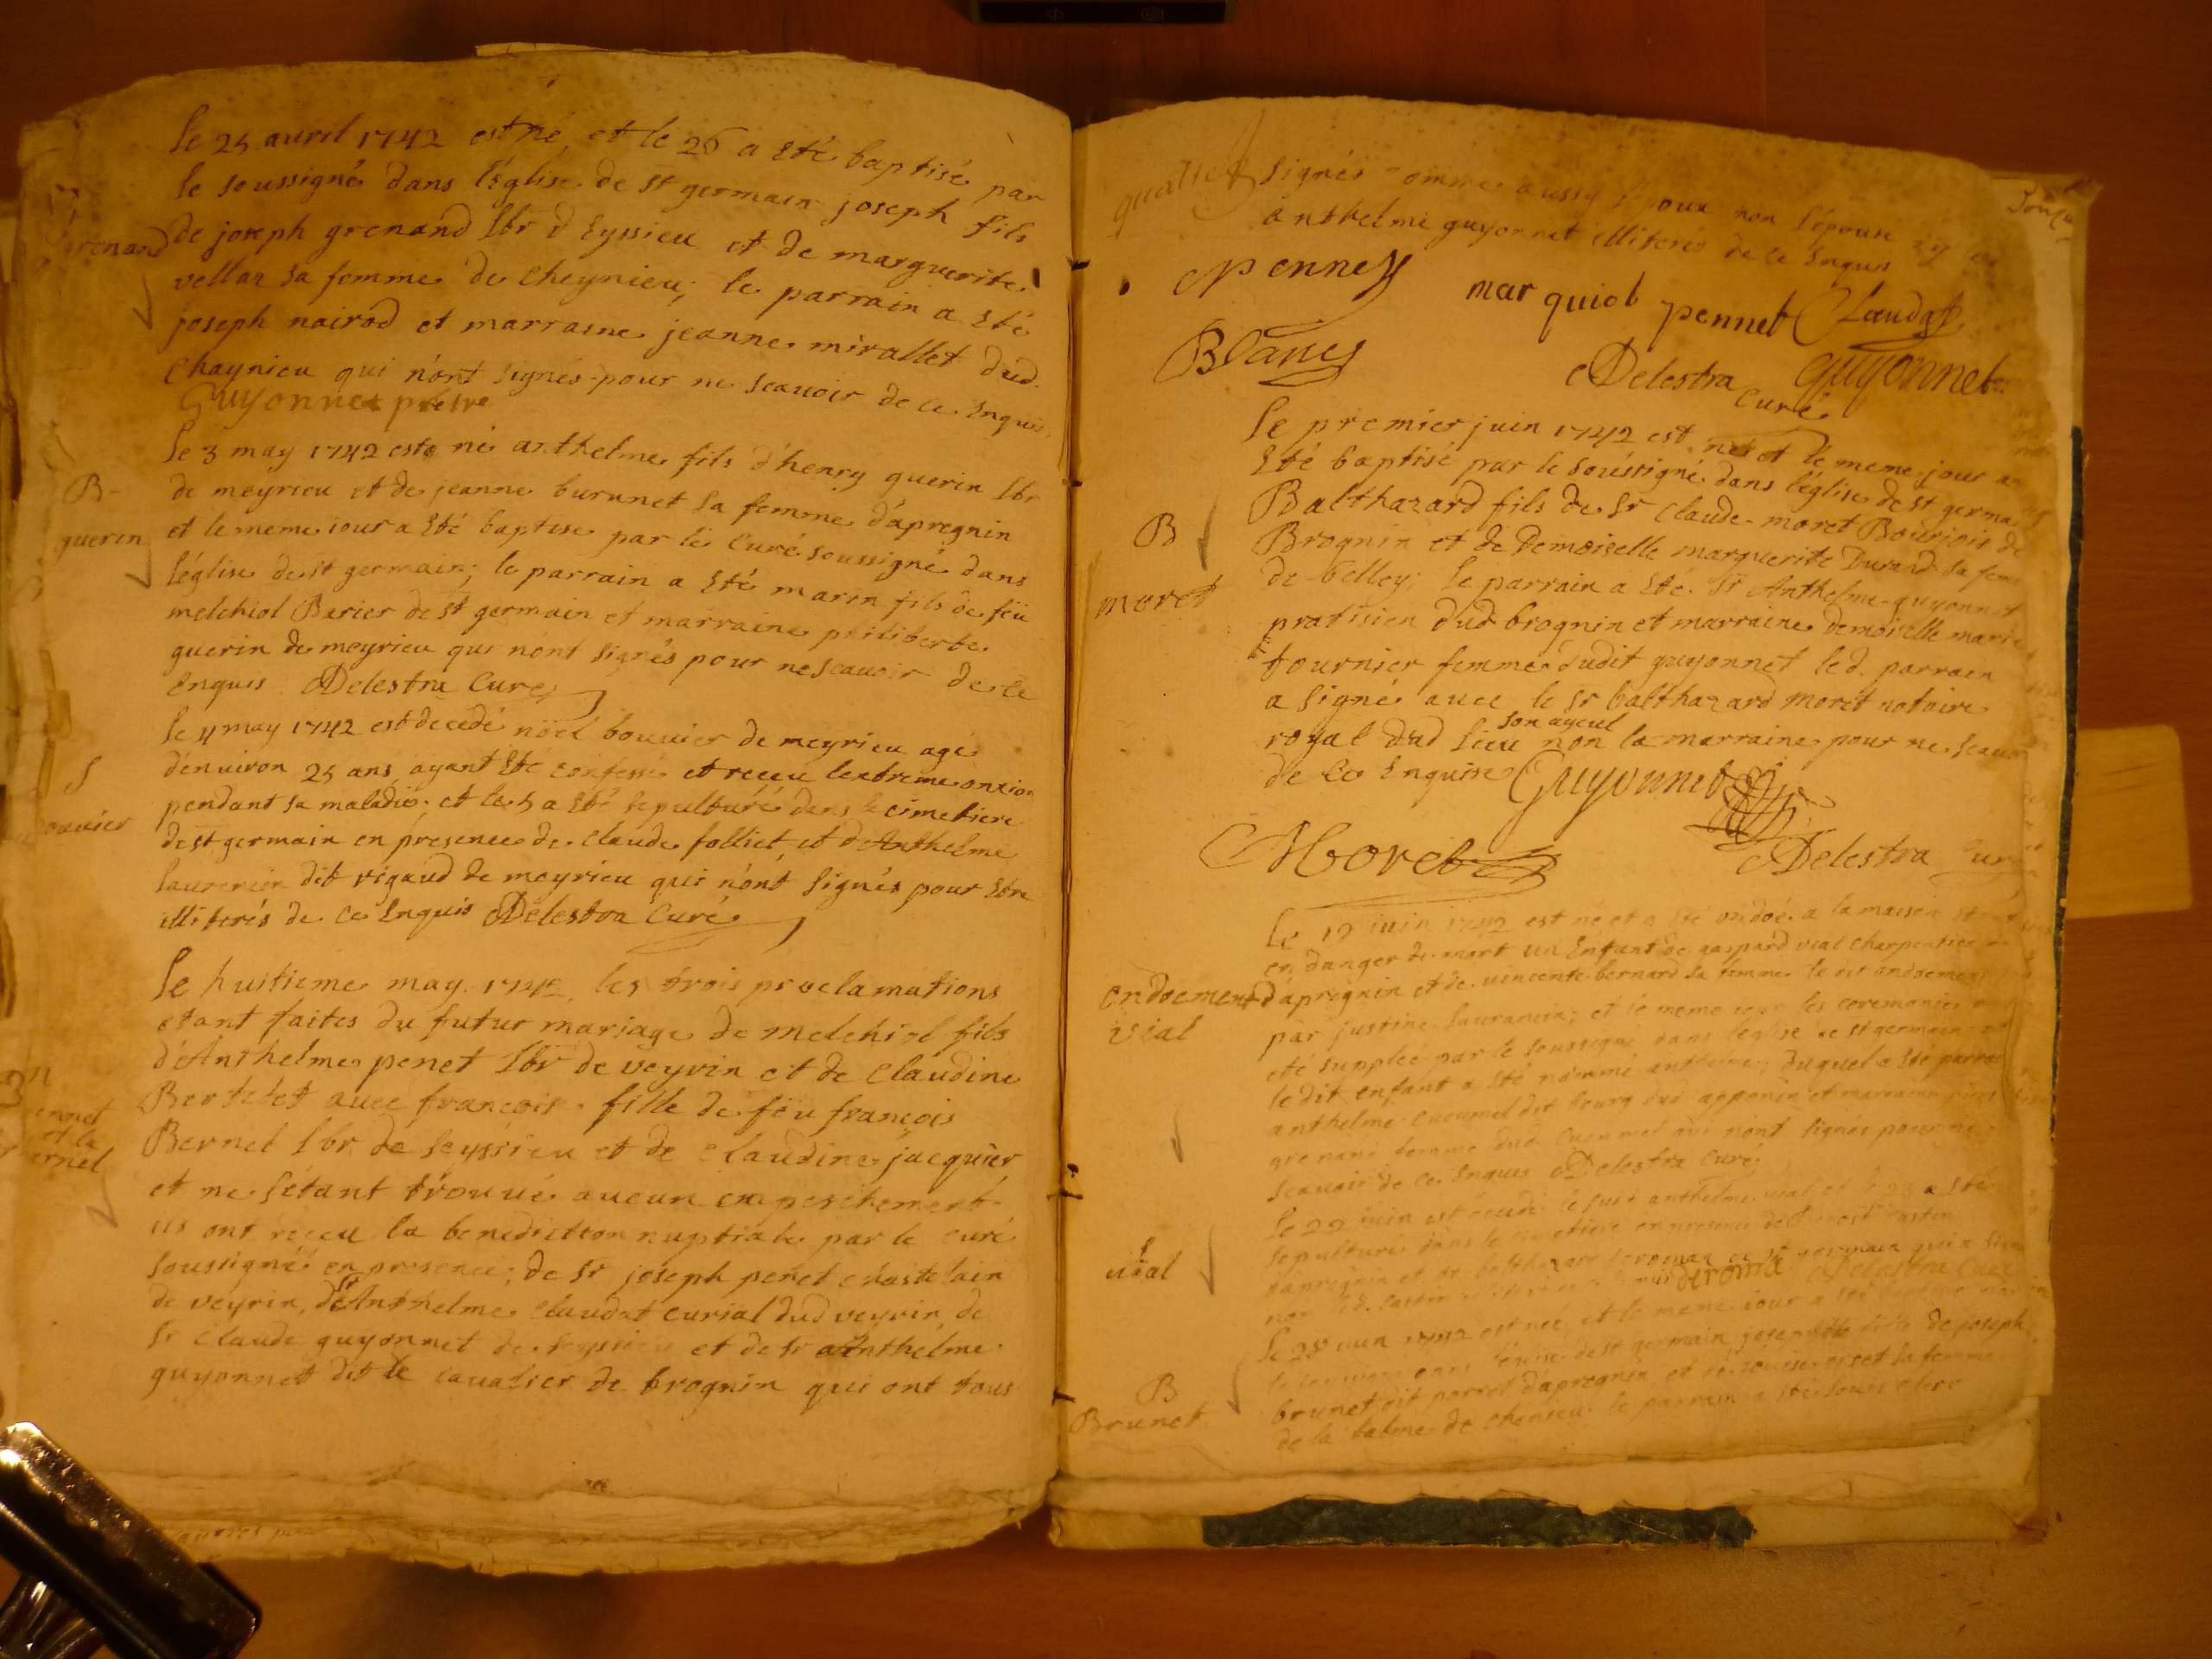 le 25 avril 1742 est né, et le 26 a Eté baptisé par
le soussigné dans l'église de st germain joseph fils
grenand
de joseph grenand lbr d Eyssieu et de marguerite
vellaz sa femme de cheynieu; le parrain a Eté
joseph nairod et marraine jeanne mirallet dud.
Chaynieu qui n'ont signés pour ne scavoir de ce Enquis
Guyonnet prêtre
le 3 may 1742 est né anthelme fils d'henry guerin lbr
B
de meyrieu et de jeanne burunet sa femme d'apregnin
guerin
et le meme iour a Eté baptise par le Curé soussigné dans
l'église de st germain; le parrain a Eté marin fils de feu
melchiol Barier de st germain et marraine philiberte
guerin de meyrieu qui n'ont signés pour ne scavoir de ce
Enquis Delestra Curé
le 4 may 1742 est decedé nöel bouvier de meyrieu agé
S
d'enuiron 25 ans, ayant Eté confessé et receu l'extreme onxion
pendant sa maladie; et le 5 a Eté sepulturé dans le cimetiere
ouvier
de st germain en presence de Claude folliet et d'Anthelme
laurencin dit rigaud de meyrieu qui n'ont signés pour Etre
illiterés de ce Enquis Delestra Curé
Le huitieme may 1742 les trois proclamations
etant faites du futur mariage de melchiol fils
d'Anthelme penet lbr de veyrin et de Claudine
ennet
et la
ernel
Bertelet avec françoise fille de feu françois
Bernel lbr de seyssieu et de Claudine jacquier
et ne s'étant trouué aucun empeschement
ils ont receu la benediction nuptiale par le curé
soussigné en presence; de sr joseph penet chastelain
de veyrin, de sr Anthelme Claudat curial dud veyrin, de
sr Claude guyonnet de seyssieu et de sr Anthelme
guyonnet dit le cavalier de brognin qui ont tous
signés comme aussy l'Epoux non l'épouse
anthelme guyonnet illiterés de ce Enquis
Pennet marquiol pennet Claudat
Blanc Delestra Curé guyonnet
Le premier juin 1742 est né et le meme jour a
Eté baptisé par le soussigné dans l'église de st germa
B
Balthazard fils de sr Claude moret Bourjois de
Brognin et de Demoiselle marguerite Durand sa fem
moret
de belley; le parrain a Eté sr Anthelme guyonnet
pratisien dud brognin et marraine demoiselle marie
tournier femme dudit guyonnet led. parrain
a signé avec le sr balthazard moret notaire
son ayeul
royal dud lieu non la marraine pour ne scavo
de ce Enquise Guyonnet
Moret Delestra Cur
Le 19 iuin 1742 est né et a Eté ondoé a la maison
en danger de mort un Enfant de gaspard vial charpentier
endoement
d'apregnin et de vincente bernard sa femme
vial
par justine laurancin; et le meme iour les ceremonies
eté supplée par le soussigné dans l'église de st germain
le dit enfant a Eté nommé anthelme; duquel a Eté parra
anthelme cucumel dit bourg dud apponin et marraine
grenand femme dud Cucumel qui n'ont signés pour ne
scavoir de ce Enquis Delestra Curé
le 22 iuin est decedé le susd anthelme vial et le 23 a Eté
sepulturé dans le cimetiere en presence de
vial
d'apregnin et de balthazard deroman de st germain qui a signé
deroma Delestra Curé
le 28 iuin 1742 est né, et le meme iour a Eté
dans l'église de st germain josephte fille de joseph
B
brunet dit perret d'apregnin et
sa femme
Brunet
de la balme de chenieu le parrain a Eté louis